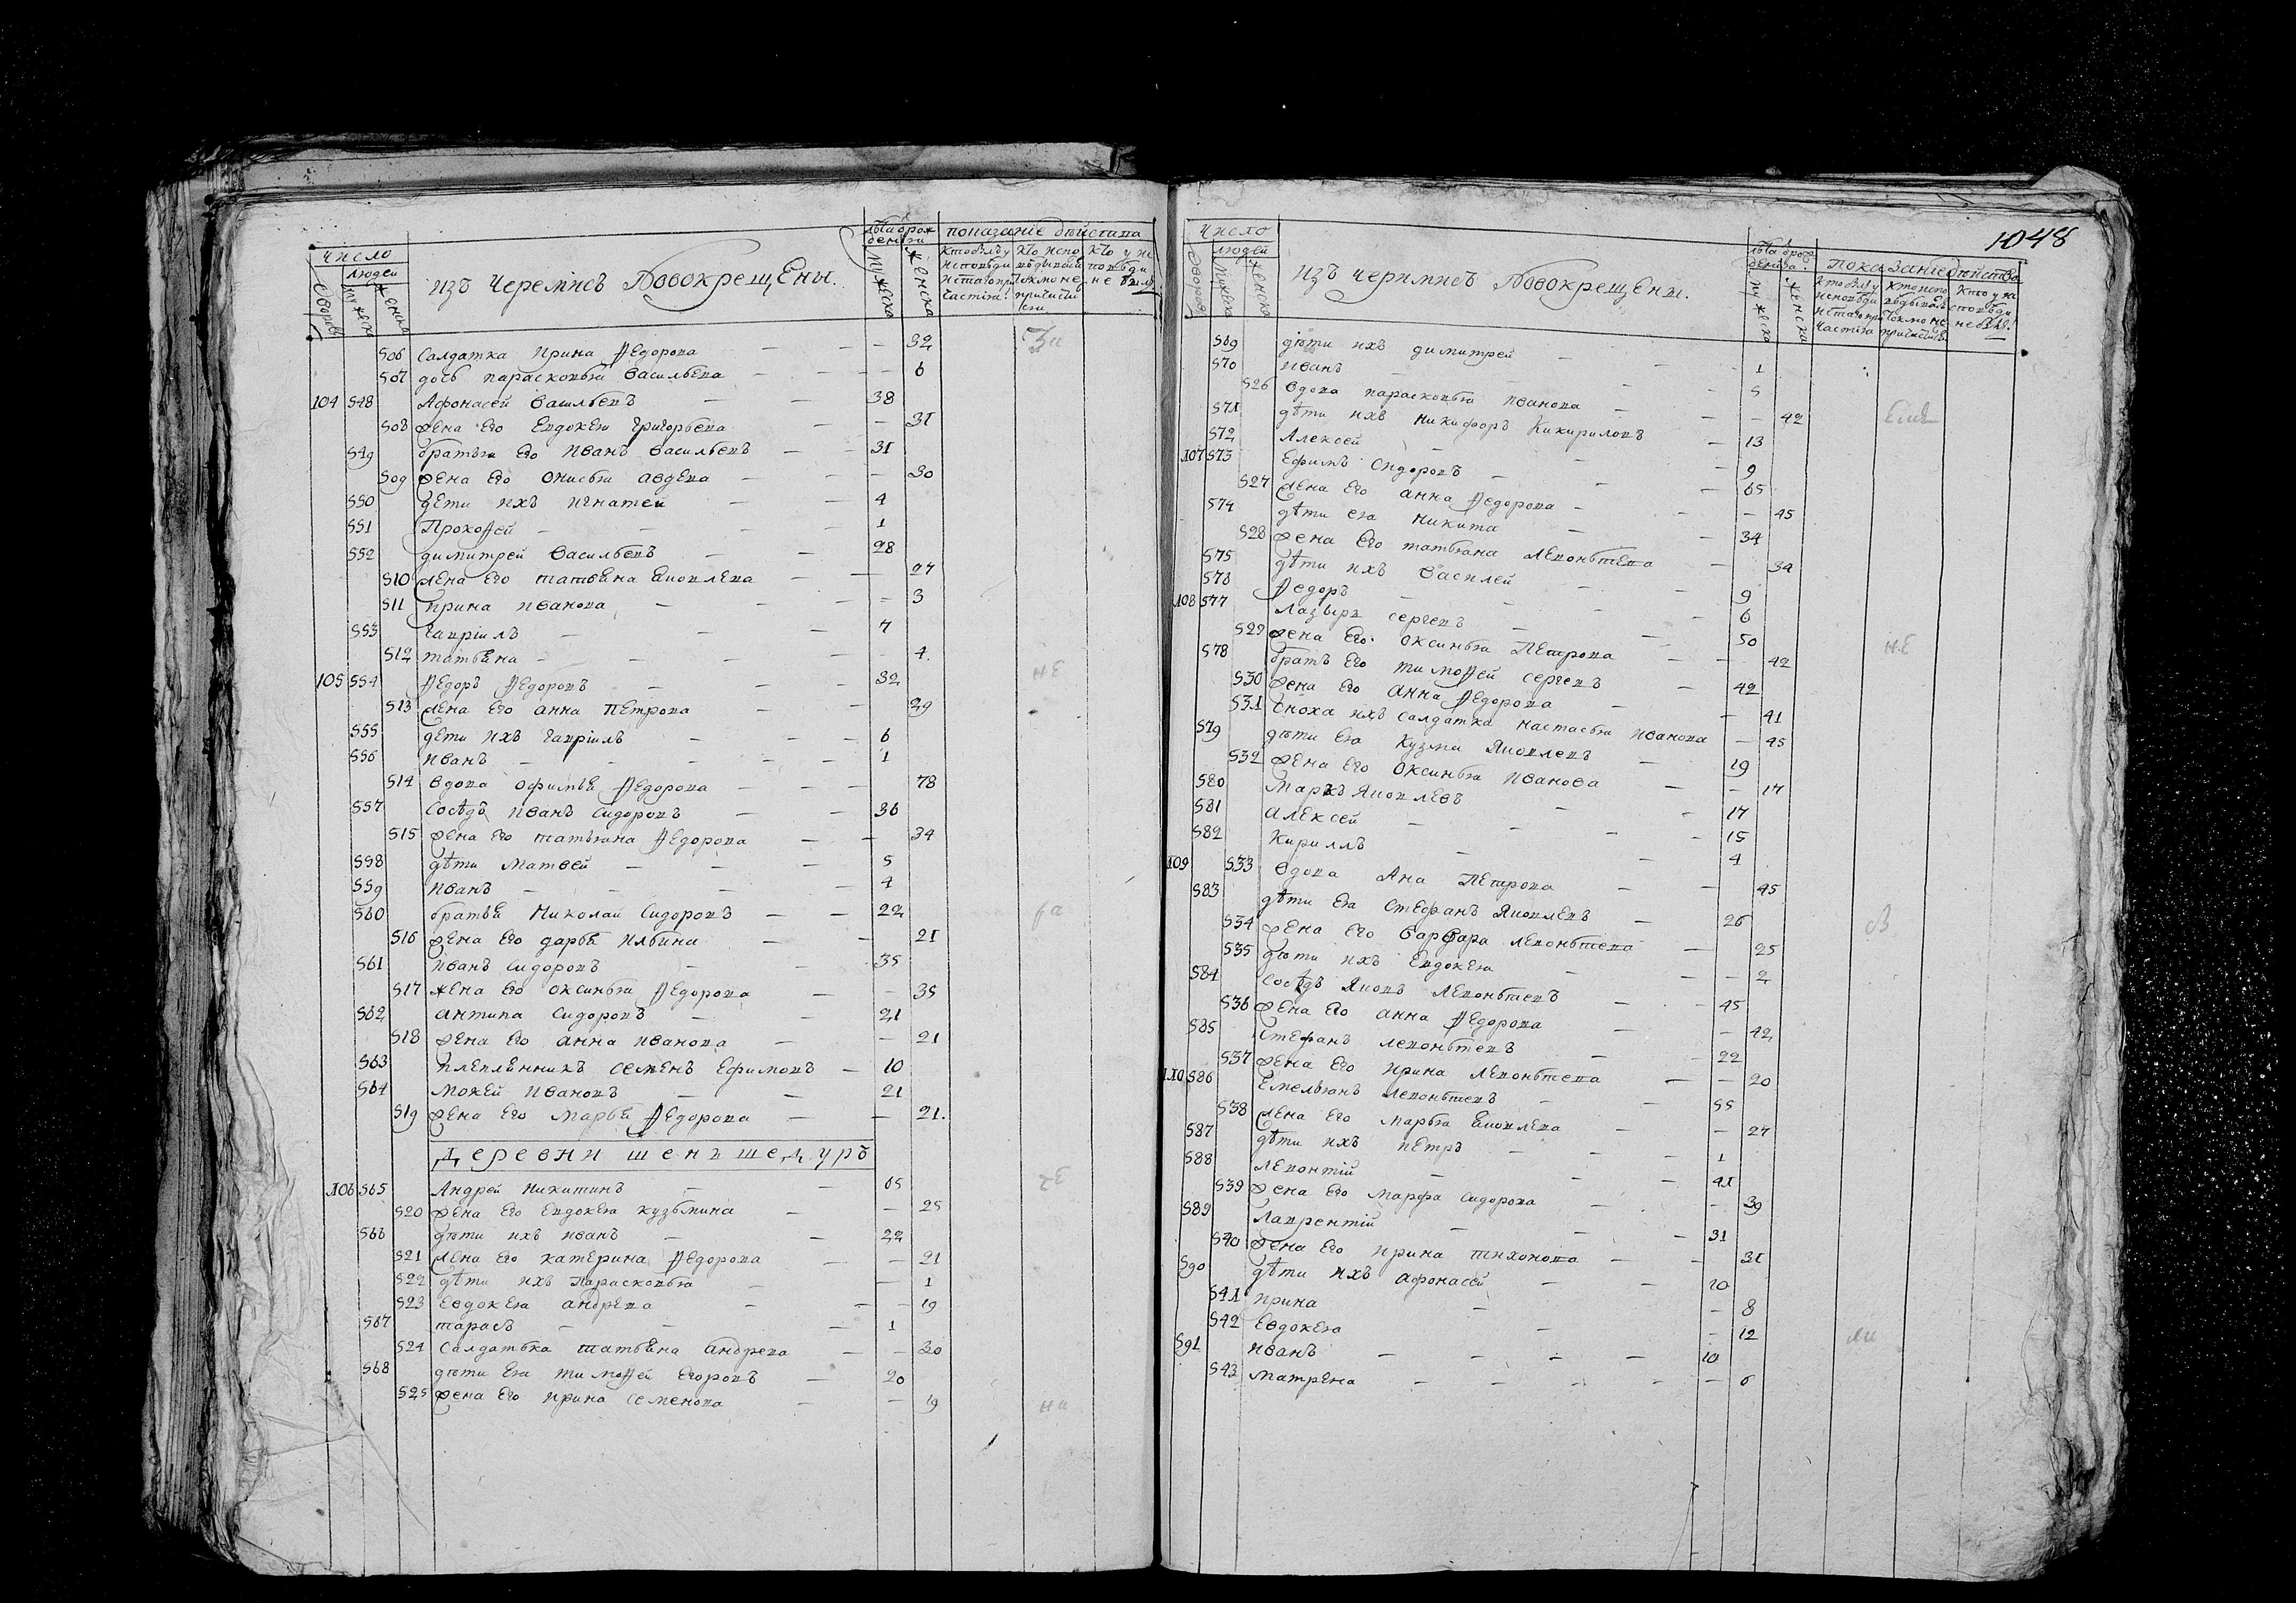 число
людей
дворовъ
мужеска
женска
Изъ черемисъ Новокрещены.
лѣта от рождения
мужеска
женска
показание действа
506 Салдатка Ирина Ѳедорова 32
507 дочь парасковья васильева 6
104 548 Афонасей васильевъ 38
508 жена его Евдокея григорьева 31
549 братья его иванъ васильевъ 31
509 жена его Онисья авдева 30
550 дети ихъ игнатей 4
551 Прокоѳей 1
552 димитрей васильевъ 28
510 жена его татьяна яковлева 27
511 ирина иванова 3
553 гавріилъ 7
512 татьяна 4
105 554 Ѳедоръ Ѳедоровъ 32
513 жена его анна Петрова 29
555 дети ихъ гавріилъ 6
556 иванъ 1
514 вдова офимья Ѳедорова 78
557 сосѣдъ иванъ сидоровъ 36
515 жена его татьяна Ѳедорова 34
558 дѣти матвей 5
559 иванъ 4
560 братья николай сидоровъ 22
516 жена его дарья ильина 21
561 иванъ сидоровъ 35
517 жена его оксинья Ѳедорова 35
562 антипа сидоровъ 21
518 жена его анна иванова 21
563 племянникъ семенъ ефимовъ 10
564 мокей ивановъ 21
519 жена его марья Ѳедорова 21.
деревни шеньшедуръ
106 565 Андрей никитинъ 65
520 жена его Евдокея кузьмина 25
566 дѣти ихъ иванъ 22
521 жена его катерина Ѳедорова 21
522 дѣти ихъ парасковья 1
523 евдокея андрева 19
567 тарасъ 1
524 салдатка татьяна андрева 30
568 дѣти ея тимоѳей егоровъ 20
525 жена его ирина семенова 19
1048
число
людей
дворовъ
мужеска
женска
Изъ черимисъ Новокрещены.
мужеска
женска
показание действа
569 дѣти ихъ димитрей 1
570 иванъ 5
526 вдова парасковья иванова 42
571 дѣти ихъ никифоръ кикириловъ 13
572 Алексей 9
107 573 Ефимъ сидоровъ 65
527 жена его анна Ѳедорова 45
574 дѣти его никита 34
528 жена его татьяна леонтьева 34
575 дѣти ихъ василей 9
576 Ѳедоръ 6
108 577 лазырь сергевъ 50
529 жена его оксинья Петрова 42
578 братъ его тимоѳей сергевъ 42
530 жена его анна Ѳедорова 41
531 сноха ихъ салдатка настасья иванова 45
579 дѣти ея кузма яковлевъ 19
532 жена его Оксинья иванова 17
580 марко яковлевъ 17
581 алексей 15
582 кириллъ 4
109 533 вдова Ана Петрова 45
583 дѣти ея стефанъ яковлевъ 26
534 жена его варвара леонтьева 25
535 дѣти ихъ Евдокея 2
584 сосѣдъ яковъ леонтьевъ 45
536 жена его анна Ѳедорова 42
585 стефанъ леонтьевъ 22
537 жена его ирина леонтьева 20
110 586 Емельянъ леонтьевъ 55
538 жена его марья яковлева 27
587 дѣти ихъ петръ 1
588 левонтій 41
539 жена его марфа сидорова 39
589 лаврентій 31
540 жена его ирина тихонова 31
590 дѣти ихъ афонасей 10
541 ирина 8
542 Евдокея 12
591 иванъ 10
543 матрена 6